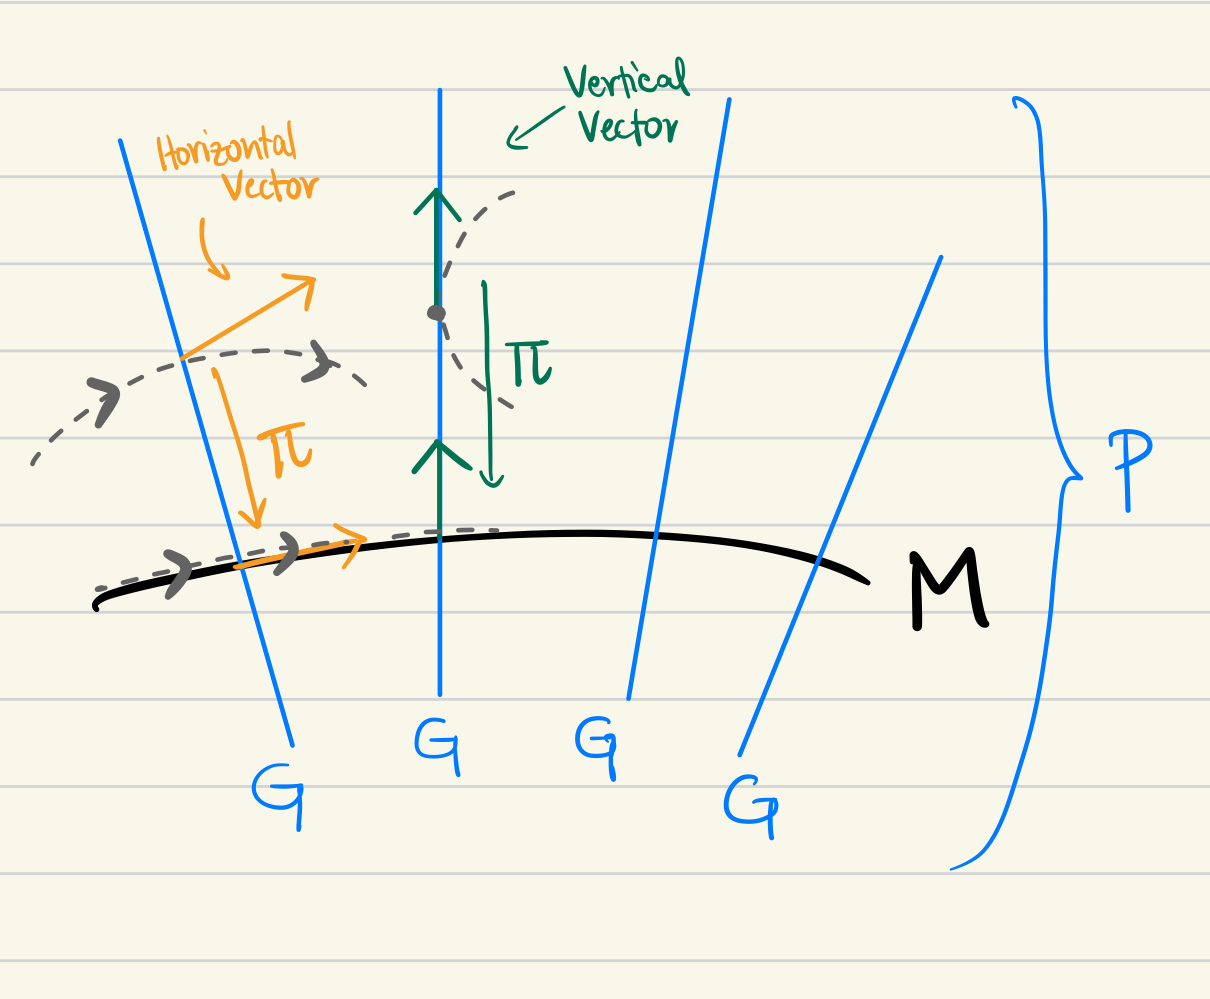 Vertical
Vector
Horizontal
Vector
π
π
P
M
G
G
G
G